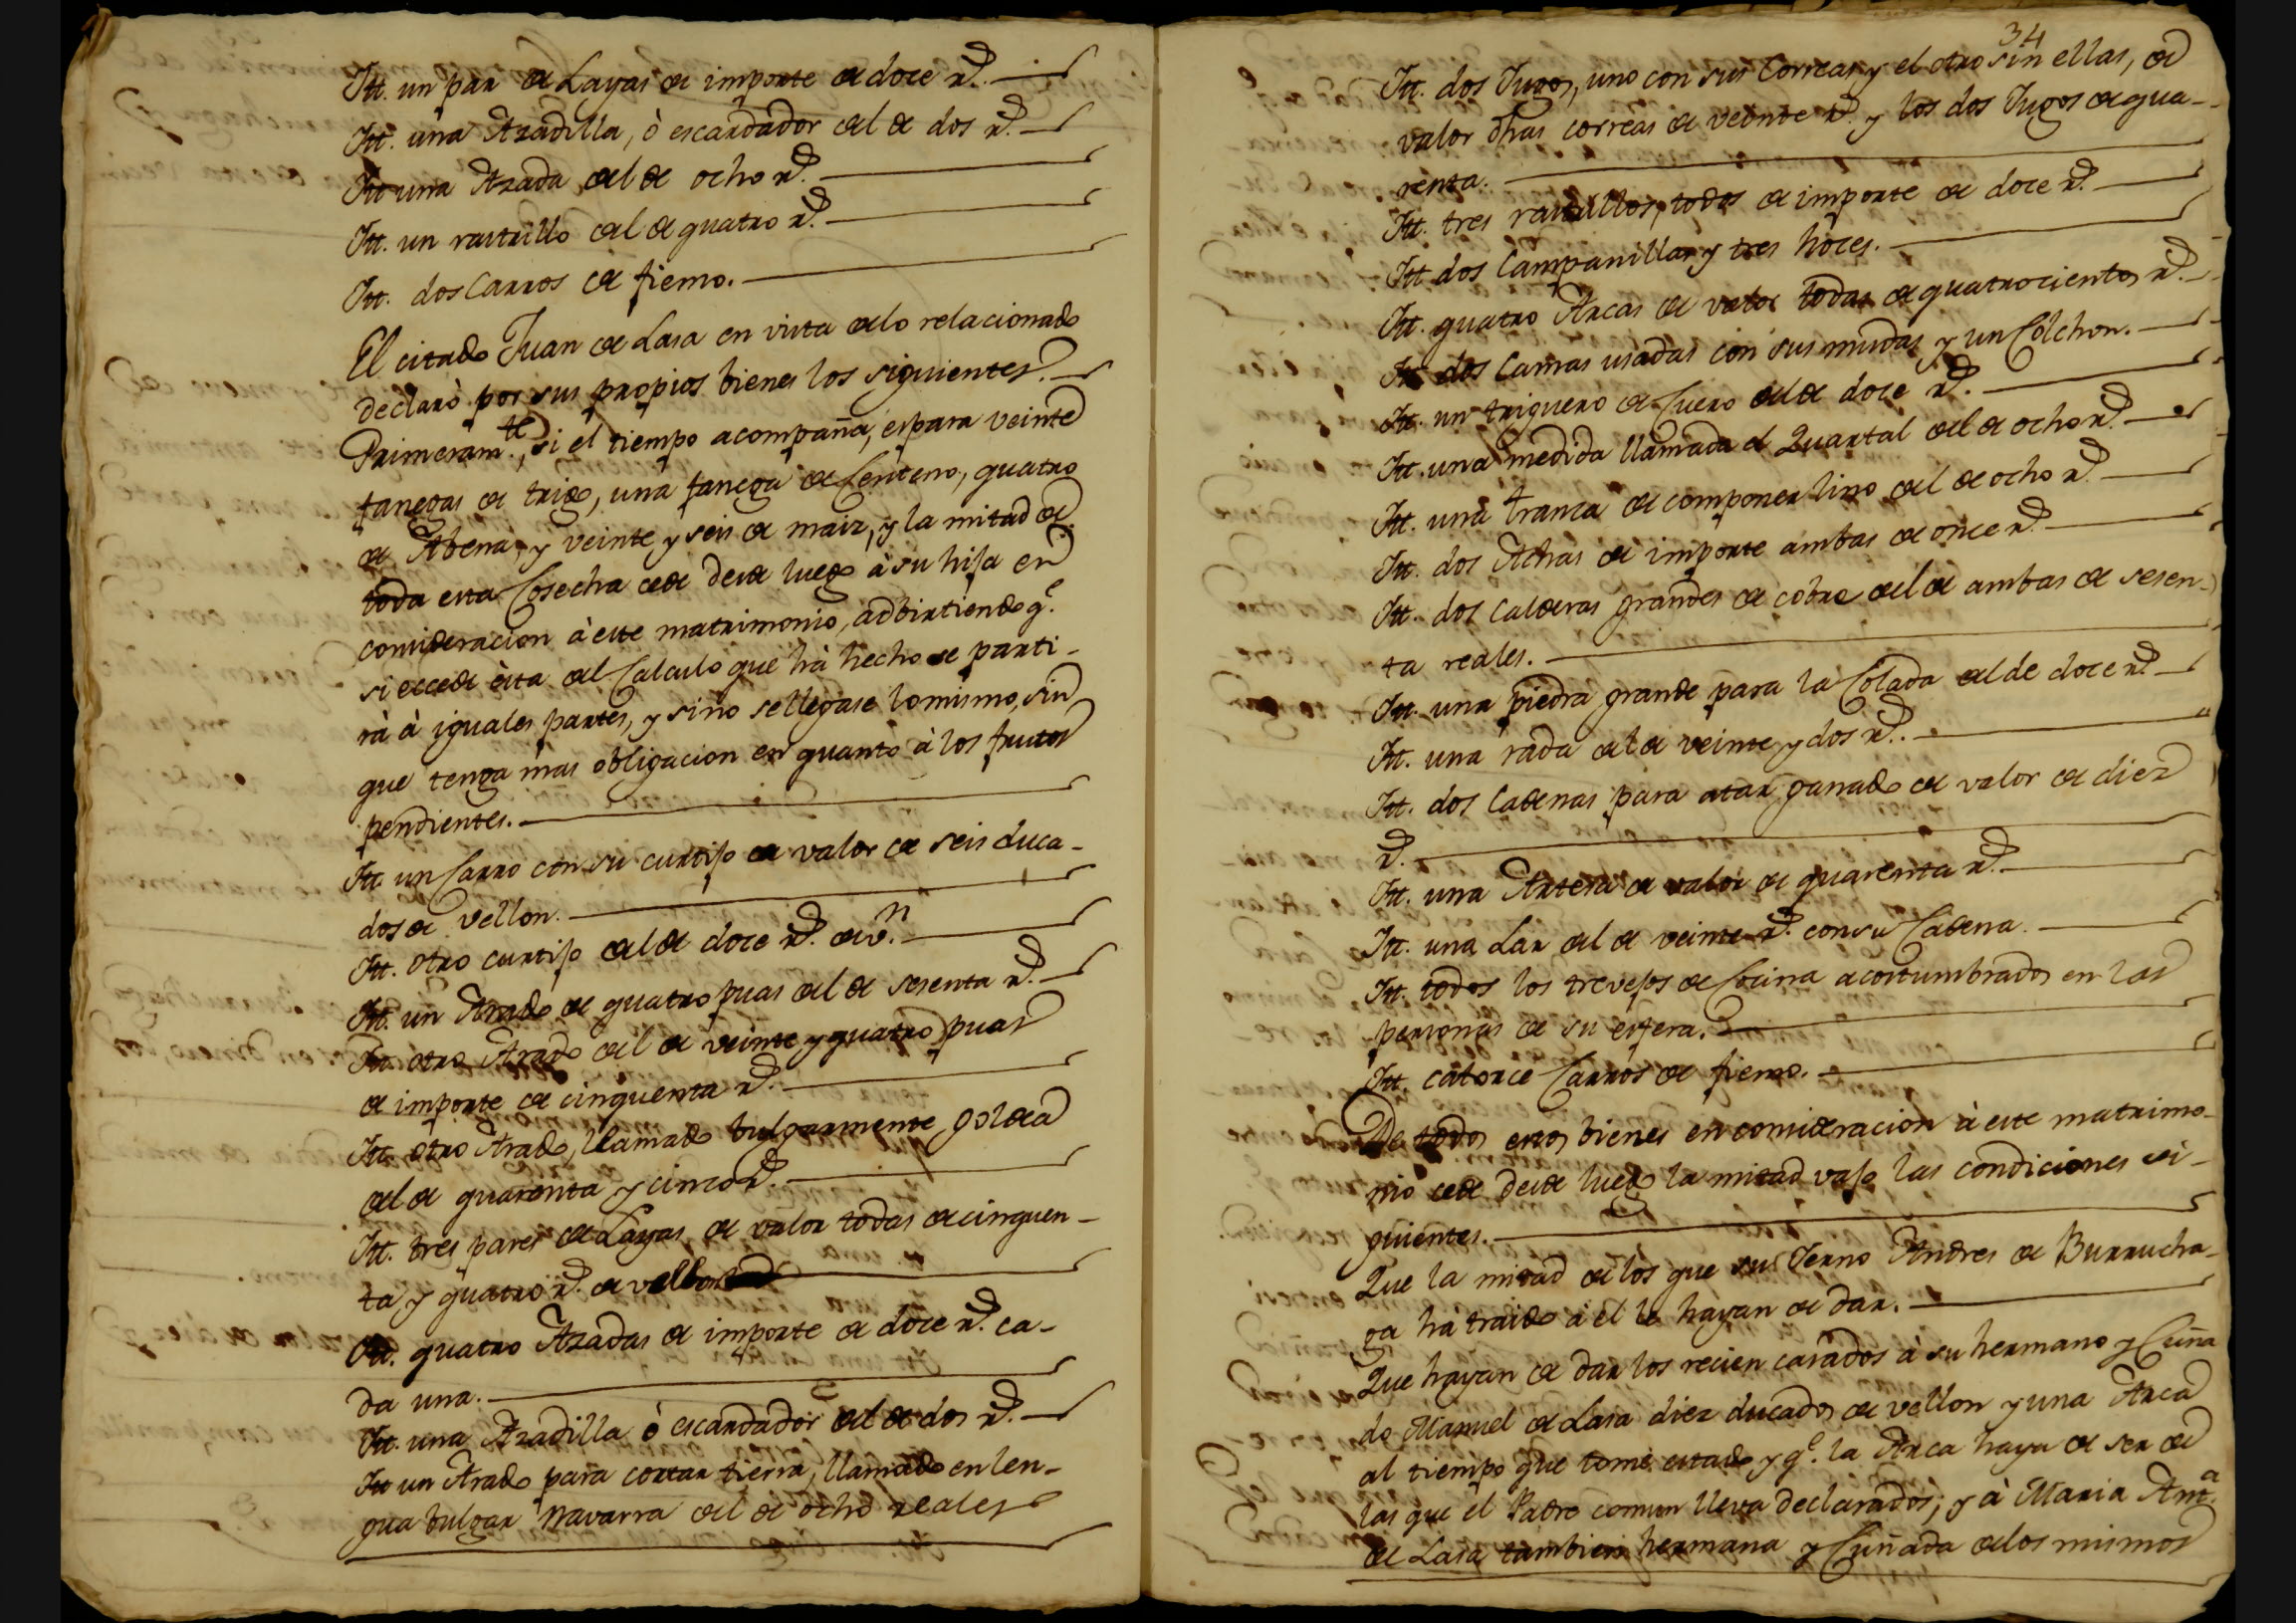 Itt. un par de Layas de importe de doce r.s
Itt. una Azadilla, ò escardador del de dos r.s
Itt una Azada del de ocho r.s
Itt. un rastrillo del de quatro r.s
Itt. dos Carros de fiemo.
El citado Juan de Lasa en vista delo relacionado
declarò por sus propios bienes los siguientes.
Primeram.te, si el tiempo acompaña, espara veinte
fanegas de trigo, una fanega de Centeno, quatro
de Abena, y veinte y seis de maiz, y la mitad de
toda esta Cosecha cede desde luego à su hija en
consideracion à este matrimonio, adbirtiendo q.e
si eccede èsta del Calculo que hà hecho se parti-
rà à iguales partes, y sino sellegase lo mismo, sin
que tenga mas obligacion en quanto à los frutos
pendientes.
Itt. un Carro con su curtijo de valor de seis duca-
dos de vellon.
Itt. otro curtijo del de doce r.s de v.n
Itt. un Arado de quatro puas del de sesenta r.s
Itt. otro Arado del de veinte y quatro puas
de importe de cinquenta r.s
Itt. otro Arado, llamado bulgarmente goldea
del de quarenta y cinco r.s
Itt. tres pares de Layas de valor todas de cinquen-
ta y quatro r.s de vellon
Itt. quatro Azadas de importe de doce r.s ca-
da una.
Itt. una Azadilla ò escardador del de dos r.s
Itt un Arado para cortar tierra, llamado en len-
gua bulgar navarra del de ocho reales
34
Itt. dos Jugos, uno con sus Correas y el otro sin ellas, de
valor dhas correas de veinte r.s y los dos Jugos de qua-
renta.
Itt. tres rastrillos, todos de importe de doce r.s
Itt dos Campanillas y tres hoces.
Itt. quatro Arcas de valor todas de quatrocientos r.s
Itt dos Camas usadas con sus mudas y un Colchon.
Itt. un triguero de Cuero del de doce r.s
Itt. una medida llamada el Quartal del de ocho r.s
Itt. una tranca de componer lino del de ocho r.s
Itt. dos Achas de importe ambas de once r.s
Itt. dos Calderas grandes de cobre del de ambas de sesen-
ta reales.
Itt. una piedra grande para la Colada del de doce r.s
Itt. una rada del de veinte y dos r.s
Itt. dos Cadenas para atar ganado de valor de diez
r.s
Itt. una Artesa de valor de quarenta r.s
Itt. una Lar del de veinte r.s con su Cadena.
Itt. todos los trevejos de Cocina acostumbrados en las
personas de su esfera.
Itt. catorce Carros de fiemo.
De todos estos bienes en consideracion à este matrimo-
nio cede desde luego la mitad vajo las condiciones si-
guientes.
Que la mitad delos que su Jerno Andres de Burrucha-
ga ha traido à el le hayan de dar.
Que hayan de dar los recien casados à su hermano y Cuña
do Manuel de Lasa diez ducados de vellon y una Arca
al tiempo que tome estado y q.e la Arca haya de ser de
las que el Padre comun lleva declarados; y à Maria Ant.a
de Lasa tambien hermana y Cuñada delos mismos